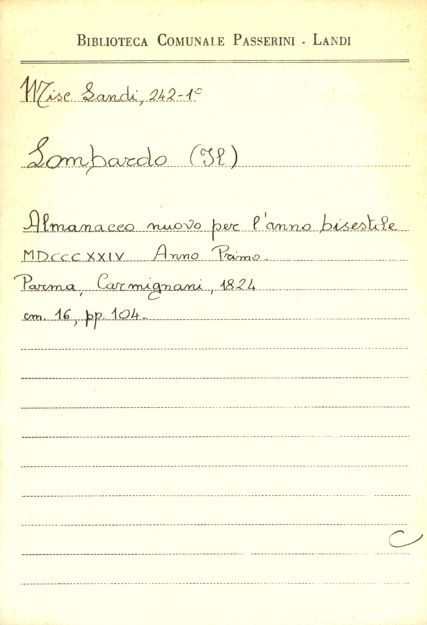 BIBLIOTECA COMUNALE PASSERINI - LANDI
Misc. Landi, 242-1°
Lombardo (Il)
Almanacco nuovo per l'anno bisestile
MDCCCXXIV Anno Primo.
Parma, Carmignani, 1824
cm. 16, pp. 104.
C